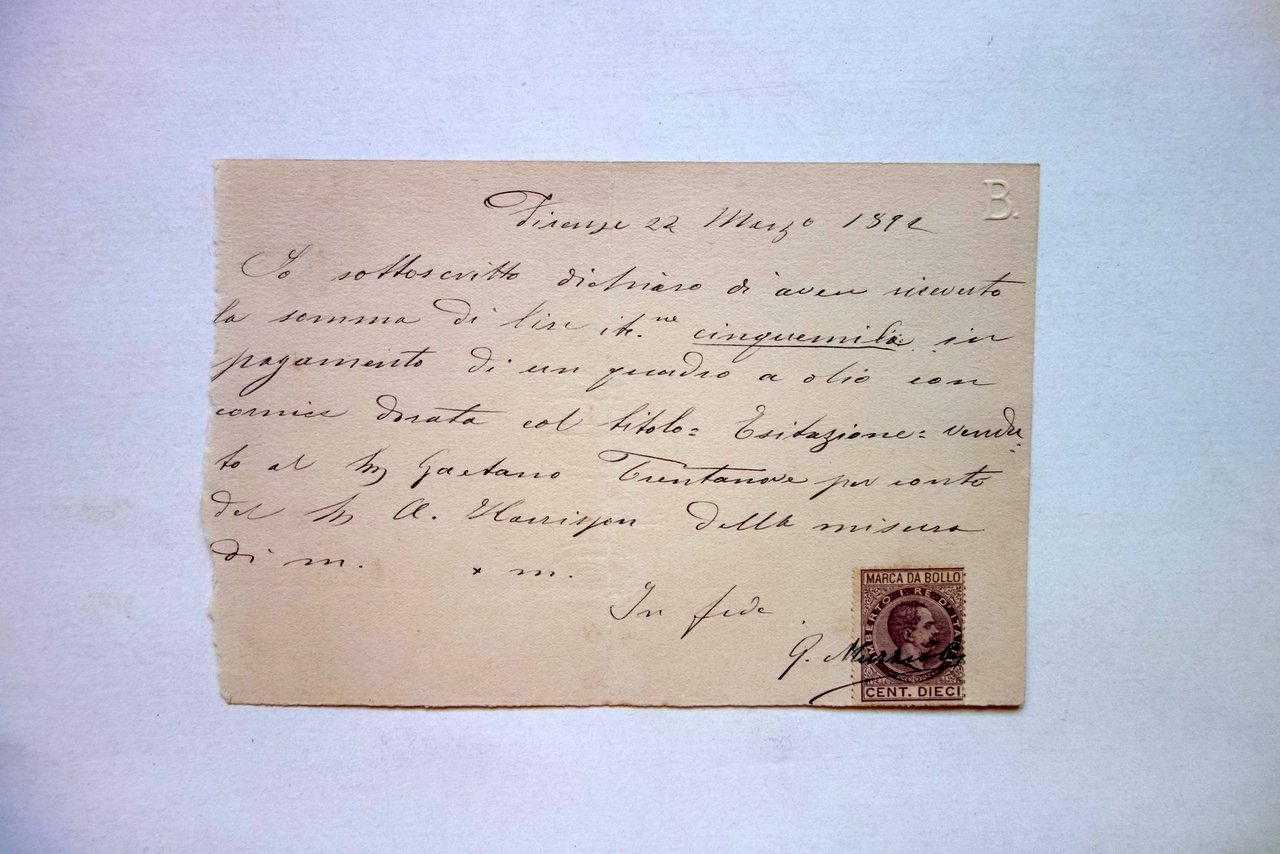 B.
Firenze 22 Marzo 1892
Io sottoscritto dichiaro di aver ricevuto
la somma di lire it.ne cinquemila in
pagamento di un quadro a olio con
cornice dorata col titolo= Esitazione= vendu=
to al Sg Gaetano Trentanove per conto
del Sg A. Harrison della misura
di m. x m.
In fede
G.
MARCA DA BOLLO
UMBERTO I. RE D'ITALIA
CENT. DIECI